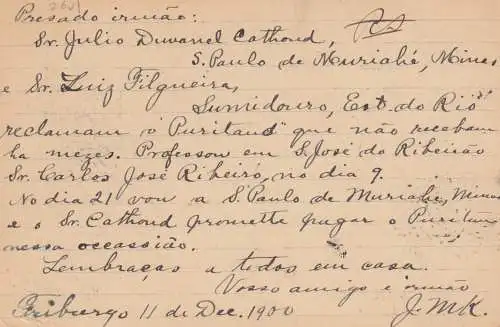 Presado irmão:
Sr. Julio Duvanel Cathoud,
S. Paulo de Muriahé, Minas
e Sr. Luiz Filgueira,
Sumidouro, Est. do Rio
reclamam o "Puritano" que não recebem
ha mezes. Professou em S. José do Ribeirão
Sr. Carlos José Ribeiro, no dia 9.
No dia 21 vou a S. Paulo de Muriahe, Minas
e o Sr. Cathoud promette pagar o Puritano
nessa occassião.
Lembraças a todos em casa.
Vosso amigo e irmão
Friburgo 11 de Dec. 1900 J. M. K.